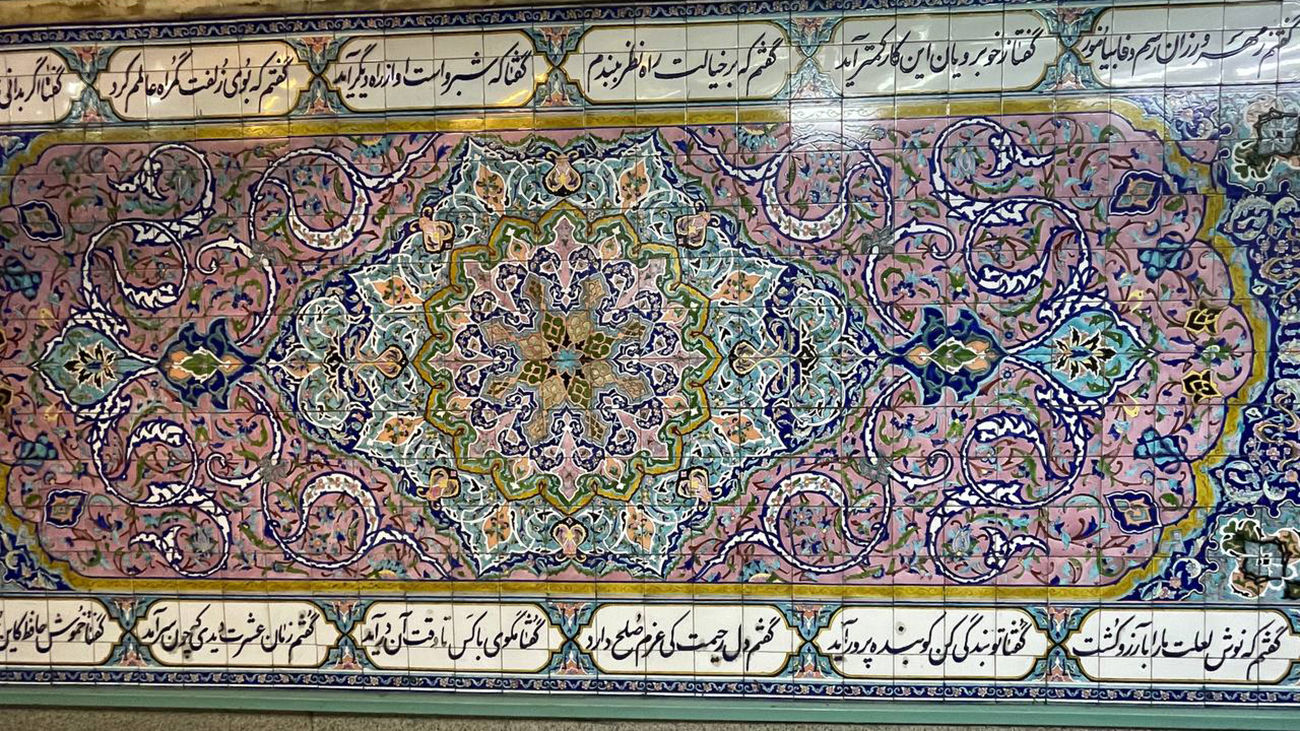 گفتم ز مهرورزان رسم وفا بیاموز
گفتا ز خوبرویان این کار کمتر آید
گفتم که بر خیالت راه نظر ببندم
گفتا که شبرو است او از ره دیگر آید
گفتم که بوی زلفت گمراه عالمم کرد
گفتا اگر بدانی
گفتم که نوش لعلت ما را بآرزو کشت
گفتا تو بندگی کن کو بنده پرور آید
گفتم دل رحیمت کی عزم صلح دارد
گفتا مگوی با کس تا وقت آن درآید
گفتم زمان عشرت دیدی که چون سر آمد
گفتا خموش حافظ کاین